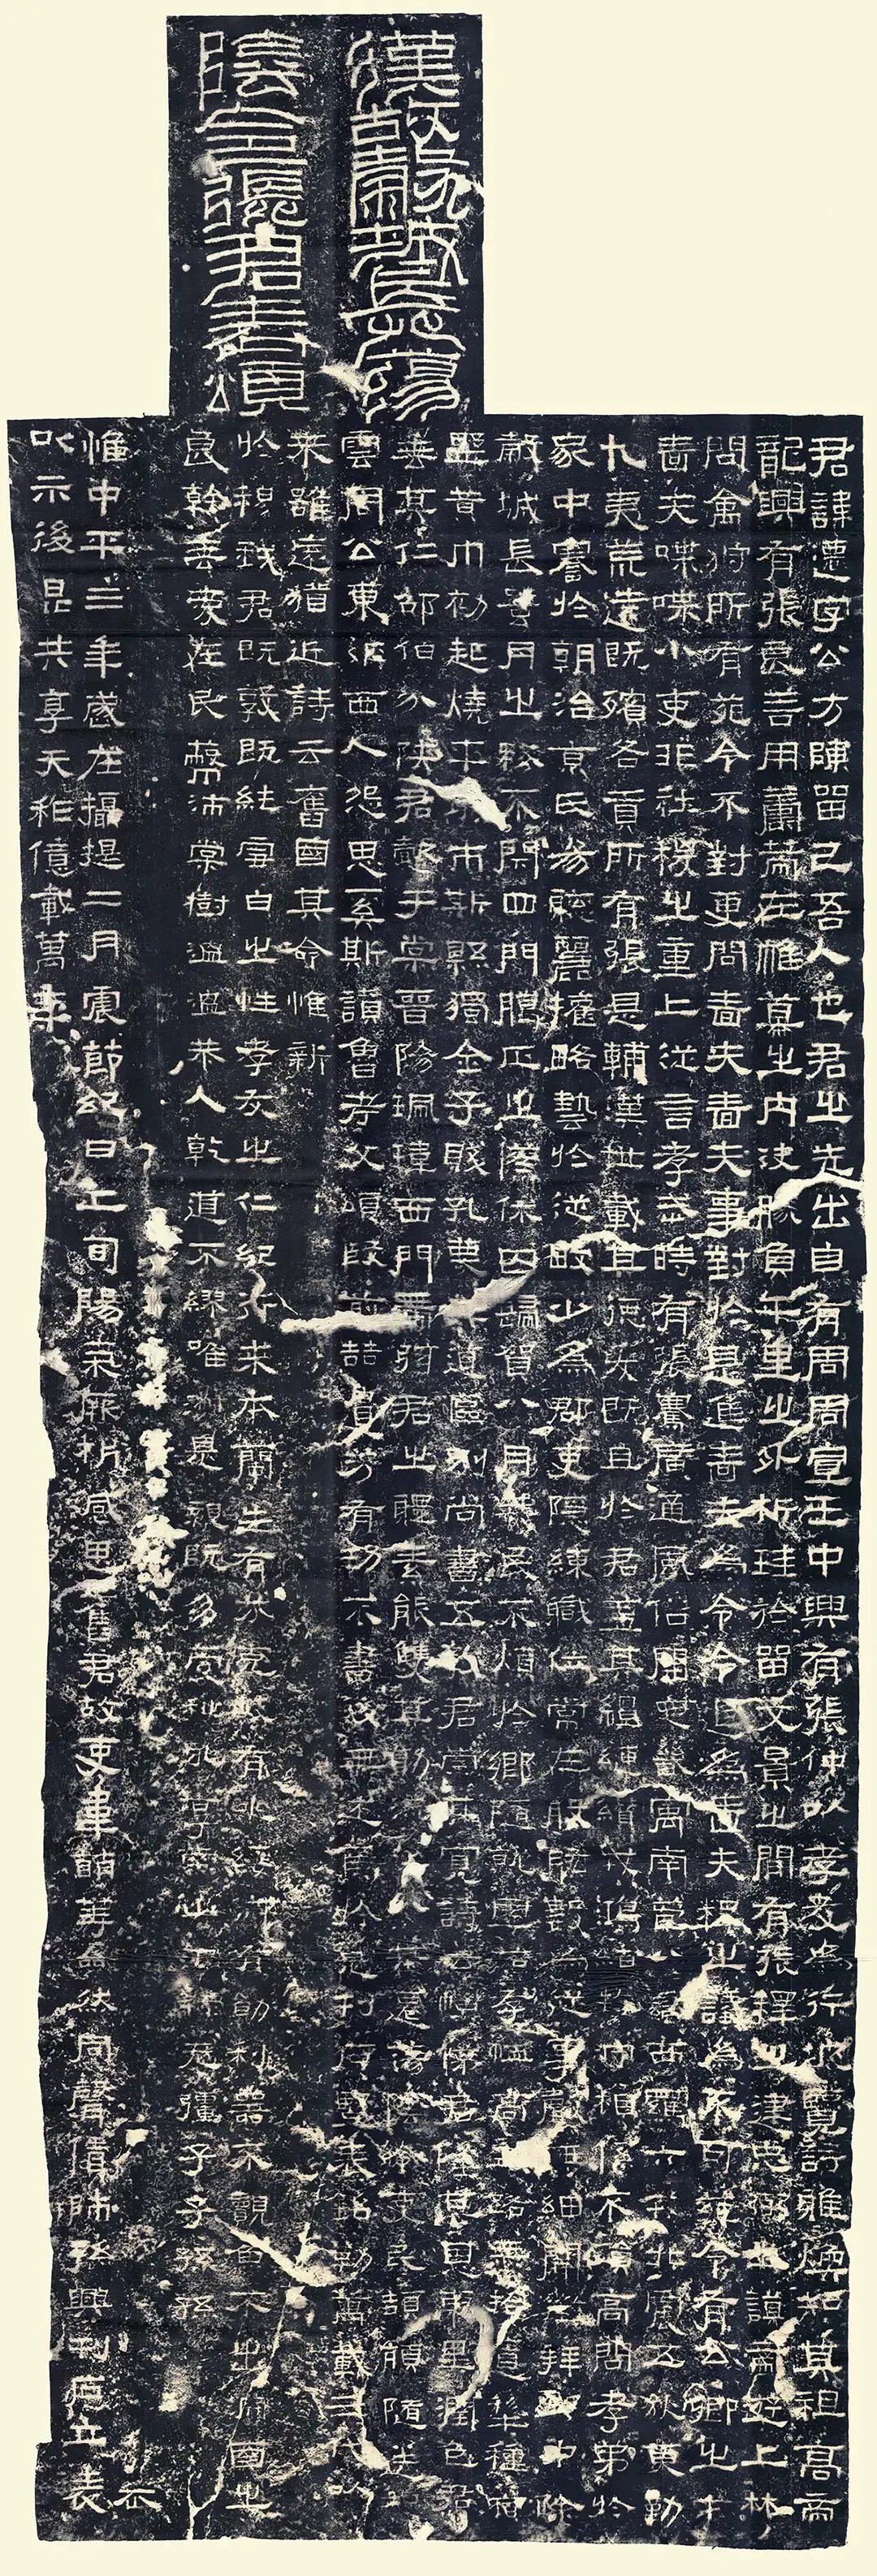 漢故穀城長蕩
陰令張君表頌
君諱遷字公方陳留己吾人也君之先出自有周周宣王中興有張仲以孝友為行披覽詩雅煥知其祖高帝
龍興有張良善用籌策在帷幕之內決勝負千里之外析珪於留文景之間有張釋之建忠弼之謨帝遊上林
問禽狩所有苑令不對更問嗇夫嗇夫事對於是進嗇夫為令令退為嗇夫釋之議為不可苑令有公卿之才
嗇夫喋喋小吏非社稷之重上從言孝武時有張騫廣通風俗開定畿寓南苞八蠻西羈六戎北震五狄東勤
九夷荒遠既殯各貢所有張是輔漢世載其德爰既且於君蓋其繵縺纘戎鴻緒牧守相係不殞高問孝弟於
家中謇於朝治京氏易聰麗權略藝於從畋少為郡吏隱練職位常在股肱數為從事聲無細聞徵拜郎中除
穀城長蠶月之務不閉四門臘正之僚休囚歸賀八月算民不煩於鄉隨就虛落存恤高年路無拾遺犁種宿
壄黃巾初起燒平城市斯縣獨全子賤孔蔑其道區別尚書五教君崇其寬詩云愷悌君隆其恩東里潤色君
垂其仁邵伯分陝君懿于棠晉陽珮瑋西門帶弦君之體素能雙其勛流化八基遷蕩陰令吏民頡頏隨送如
雲周公東征西人怨思奚斯讚魯考父頌殷前喆遺芳有功不書後無述焉於是刊石豎表銘勒萬載三代以
來雖遠猶近詩云舊國其命惟新
於穆我君既敦既純雪白之性孝友之仁紀行求本蘭生有芬克岐有兆綏御有勛利器不覿魚不出淵國之
良幹垂愛在民蔽沛棠樹溫溫恭人乾道不繆唯淑是親既多受祉永享南山干祿無疆子子孫孫
惟中平三年歲在攝提二月震節紀日上旬陽氣厥析感思舊君故吏韋萌等僉然同聲賃師孫興刊石立表
以示後昆共享天祚億載萬年